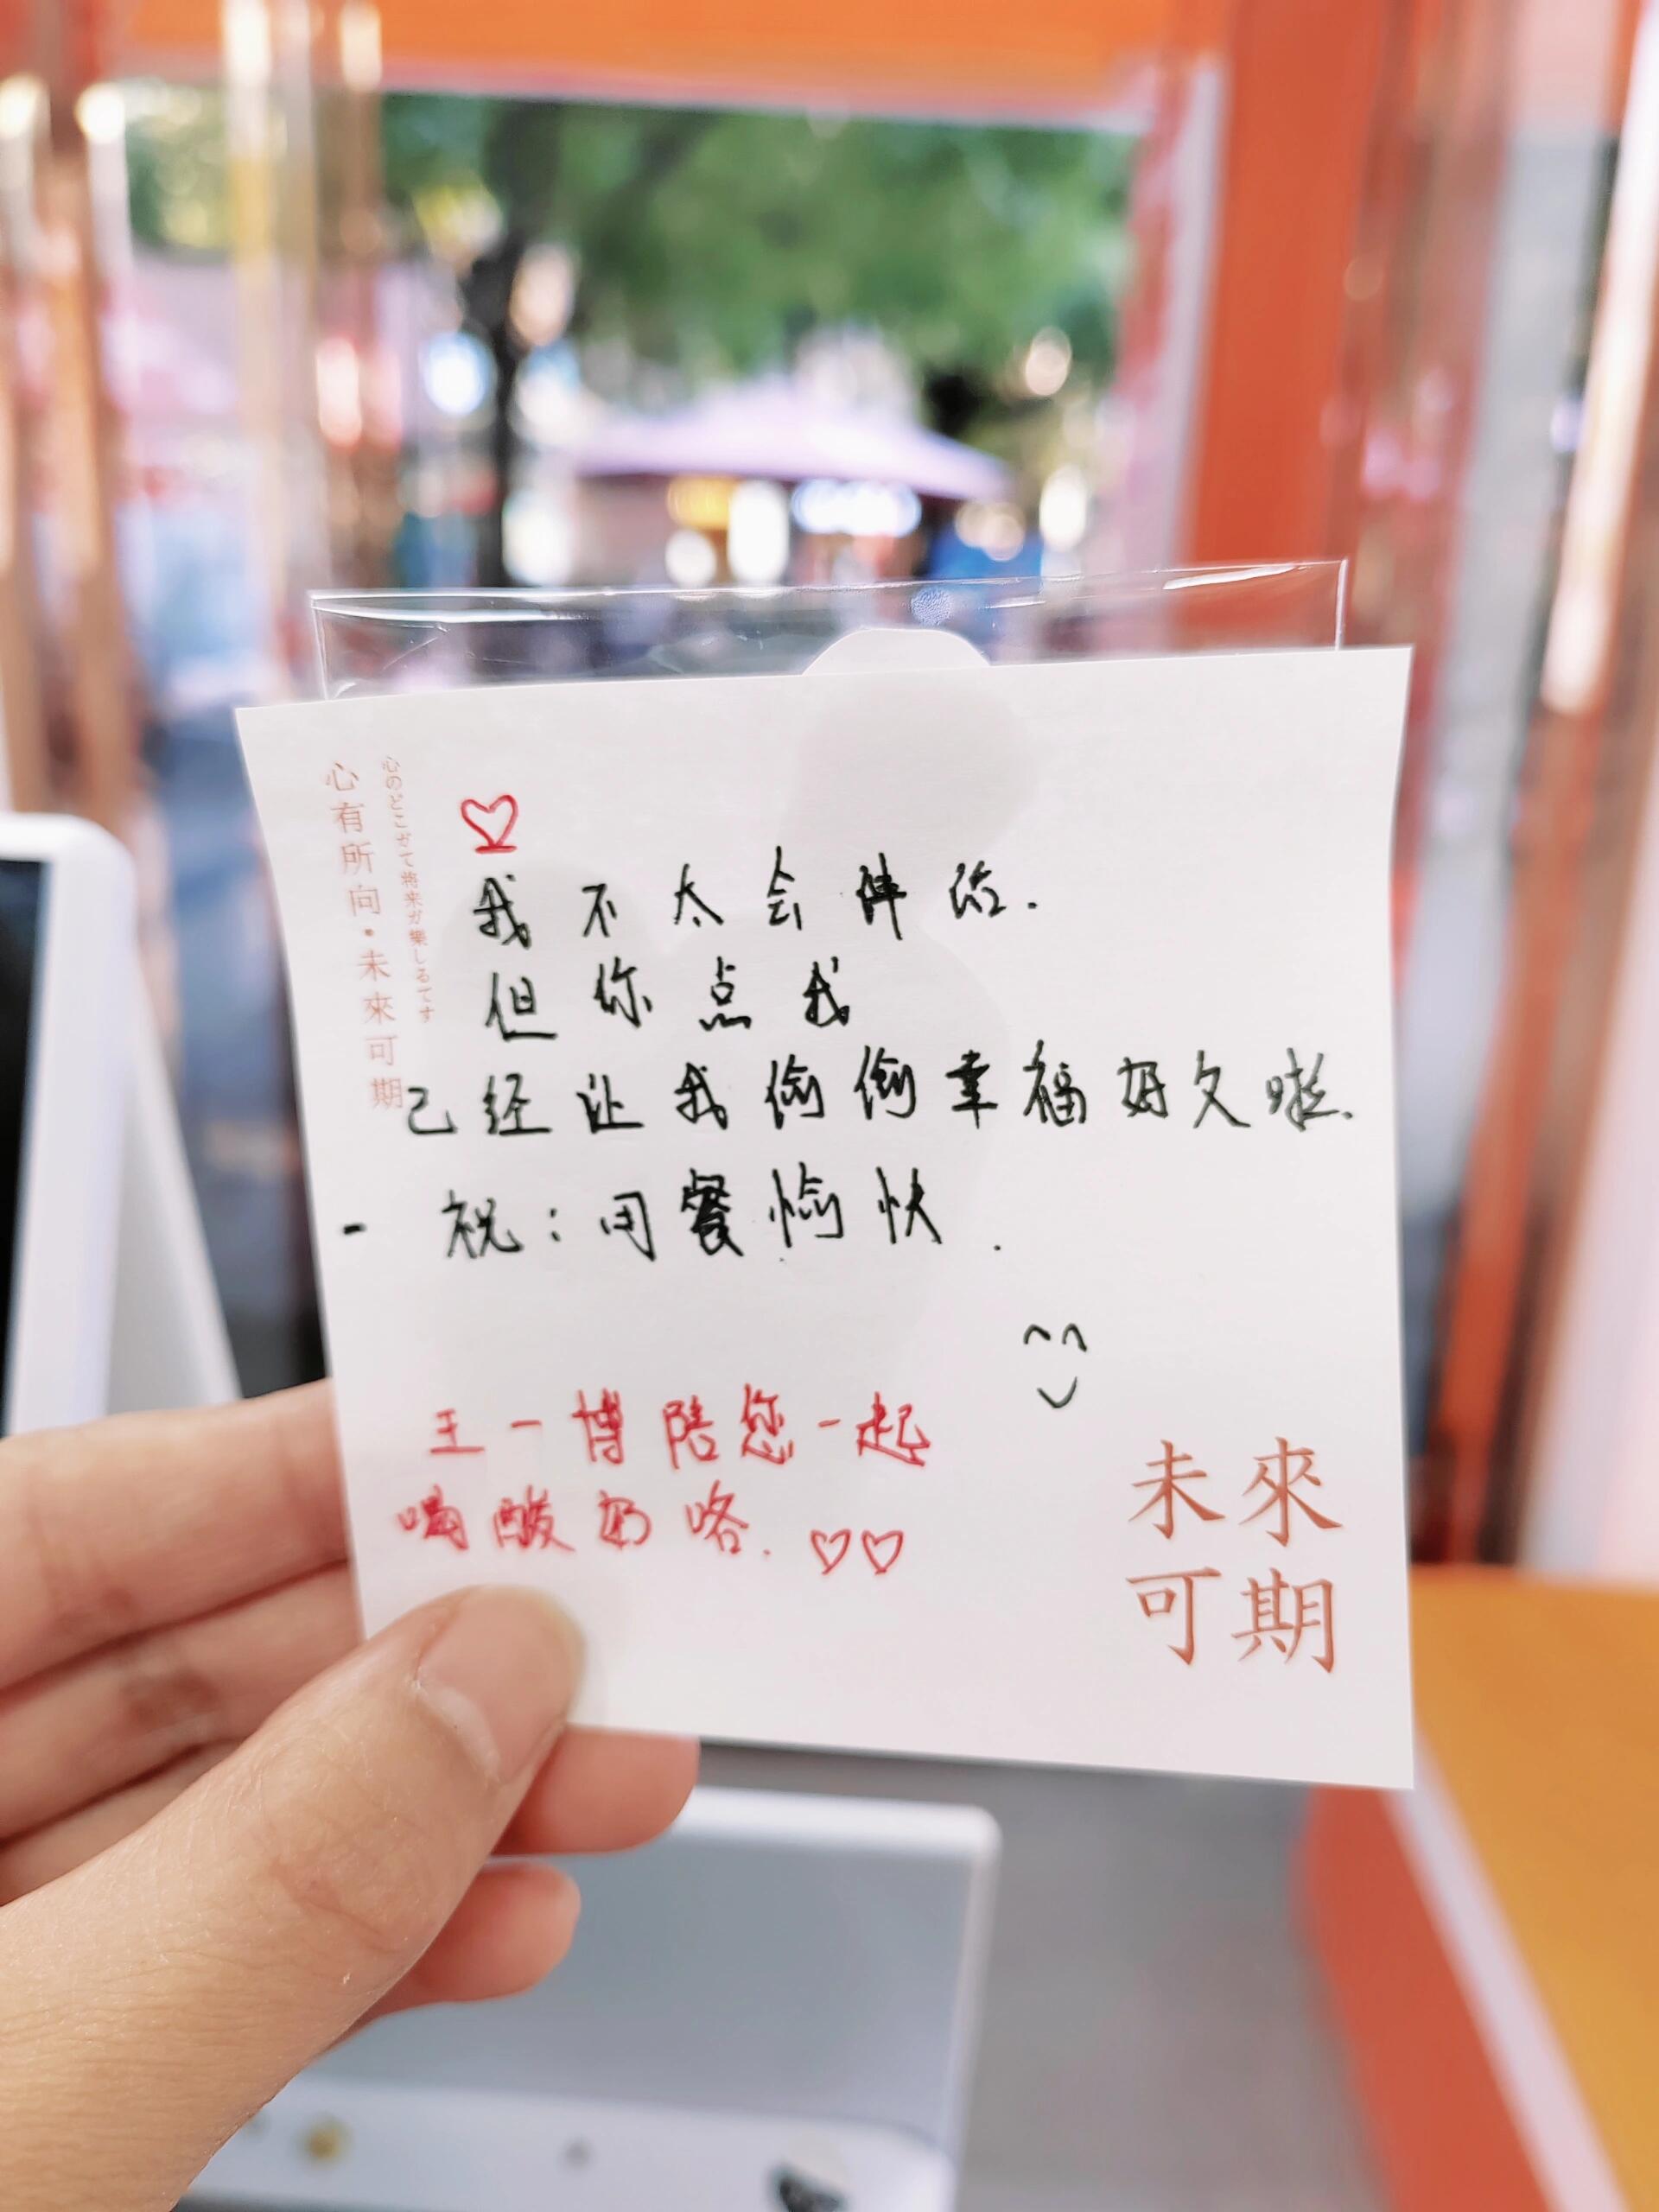 心有所向·未來可期
心のどこがて将来が樂しるてす
我不太会讲话.
但你点我
已经让我偷偷幸福好久啦.
- 祝:用餐愉快.
王一博陪您一起
喝酸奶咯.
未來
可期